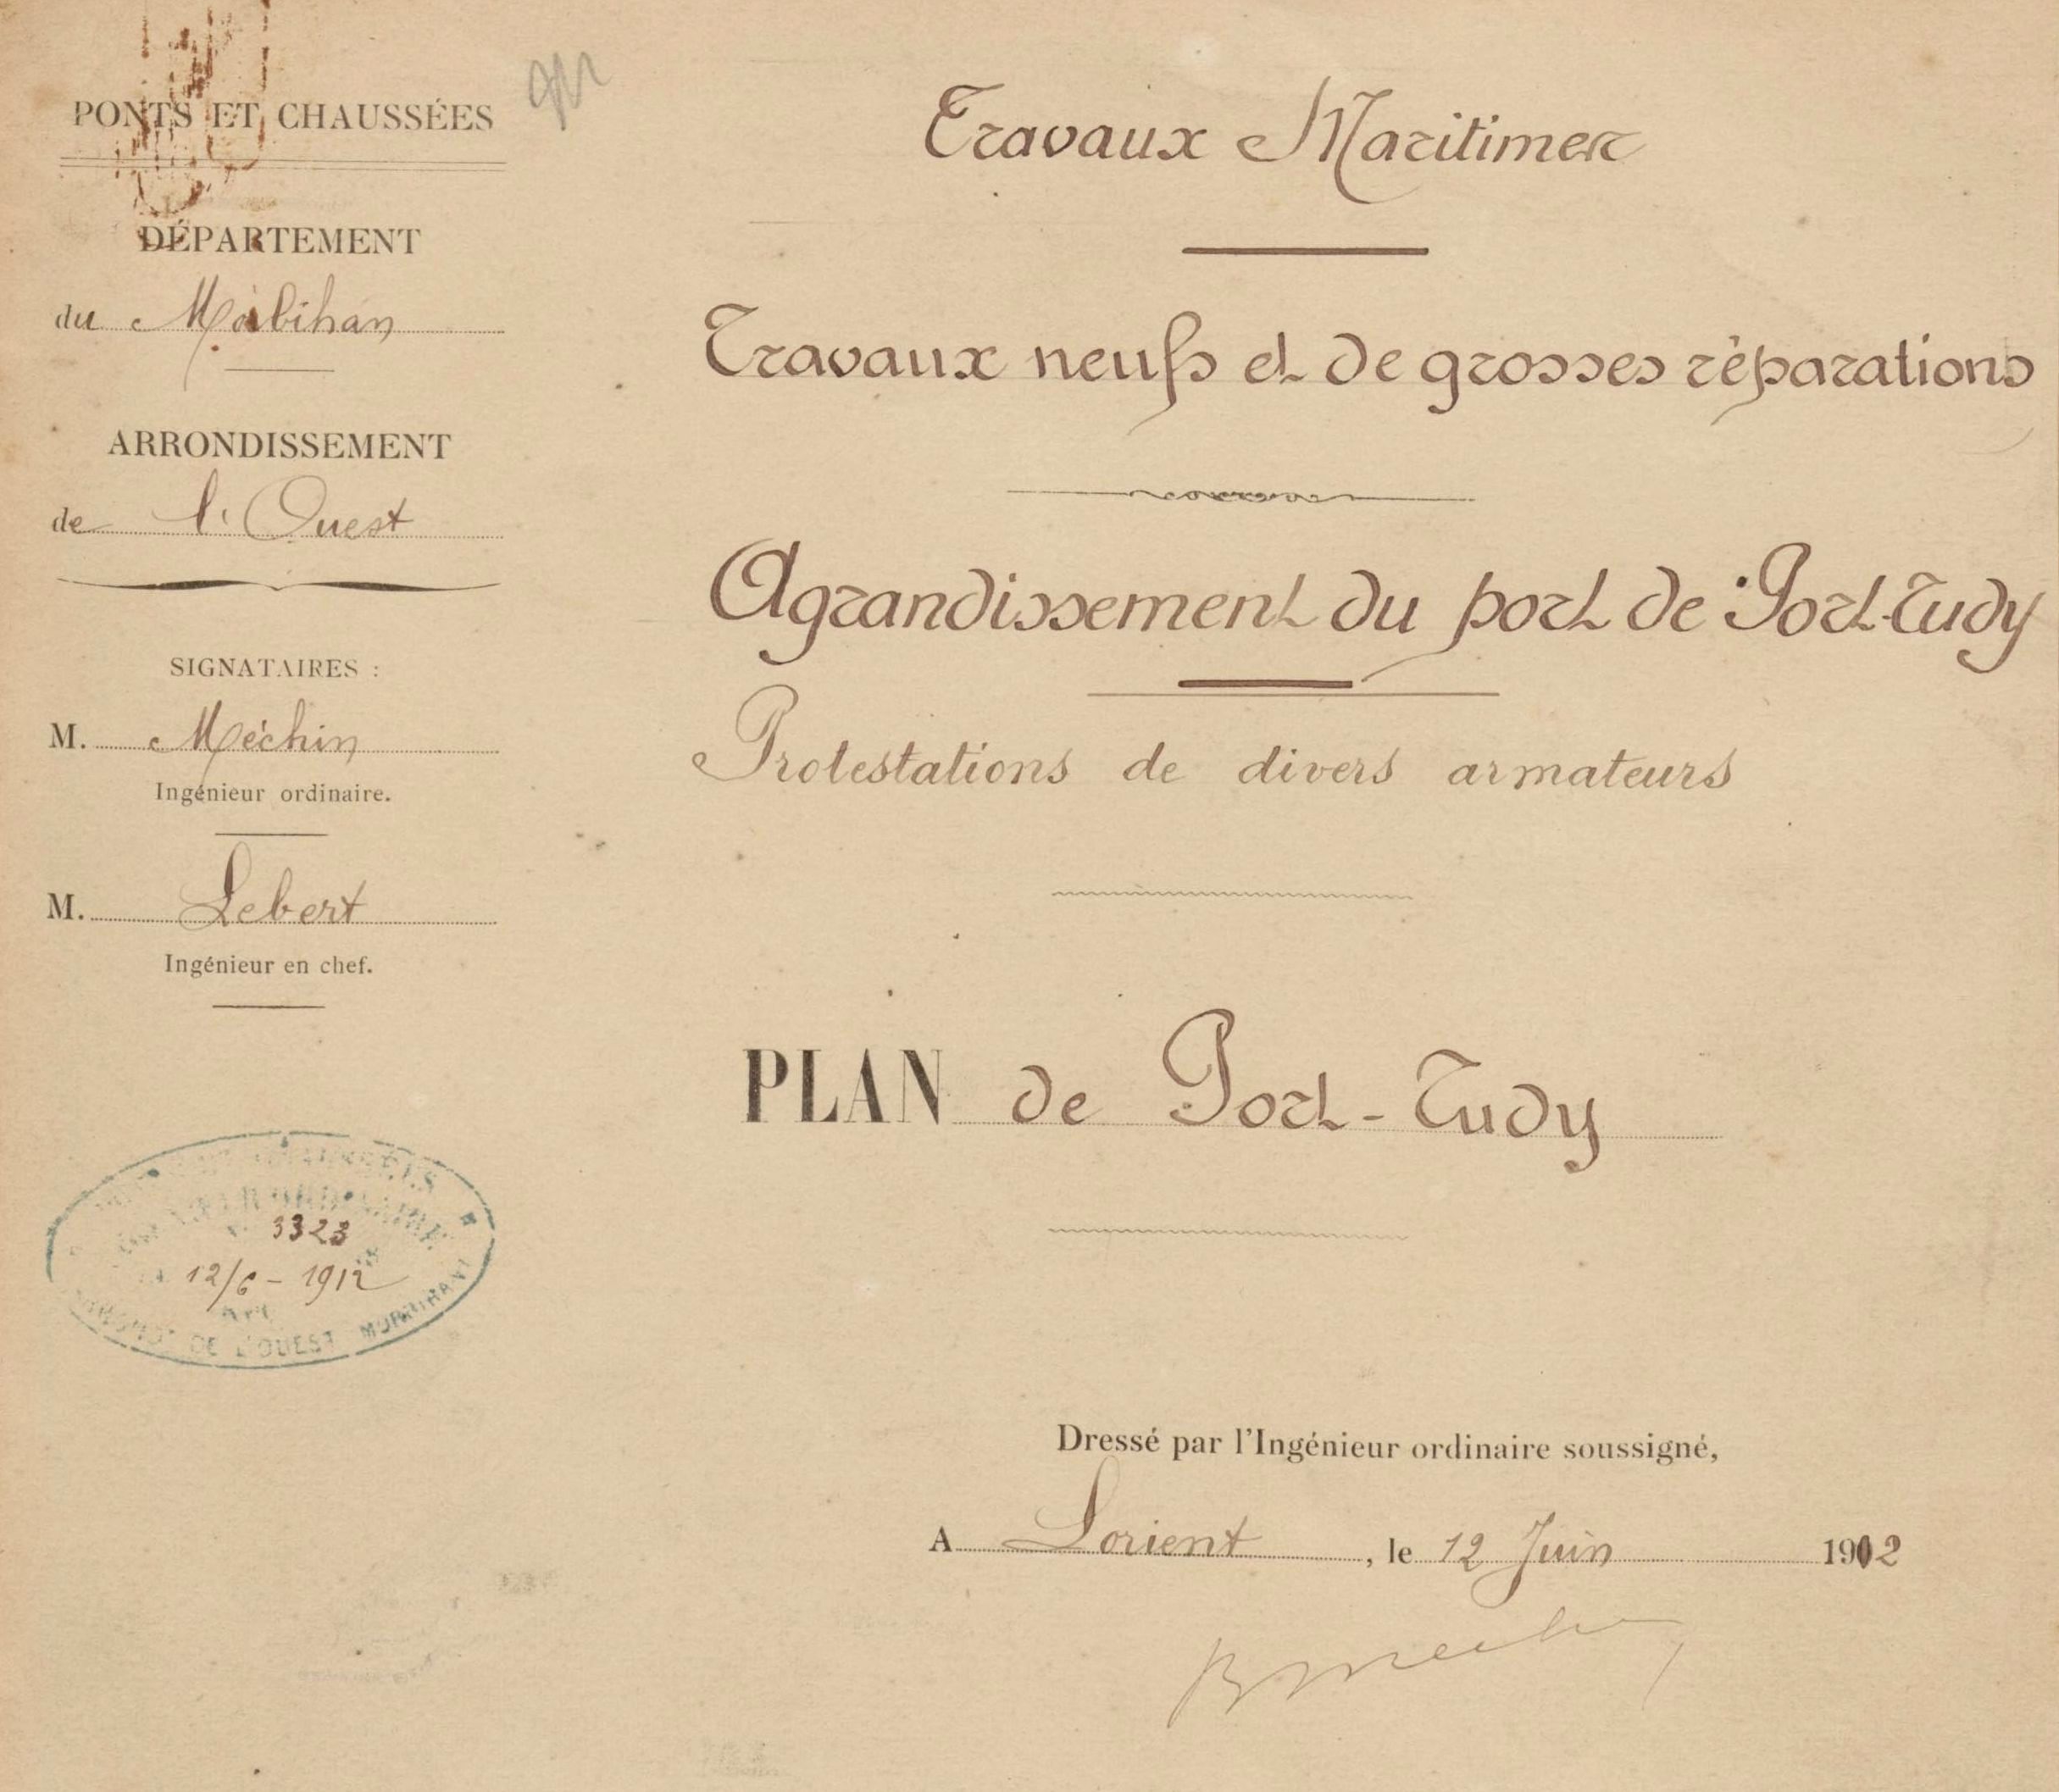 PONTS ET CHAUSSÉES
DÉPARTEMENT
du Morbihan
ARRONDISSEMENT
de l'Ouest
SIGNATAIRES :
M. Méchin
Ingénieur ordinaire.
M. Lebert
Ingénieur en chef.
3323
12/6 - 1912
DE L'OUEST MORBIHAN
Travaux Maritimes
Travaux neufs et de grosses réparations
Agrandissement du port de Port-Tudy
Protestations de divers armateurs
PLAN de Port-Tudy
Dressé par l'Ingénieur ordinaire soussigné,
A Lorient, le 12 Juin 1912